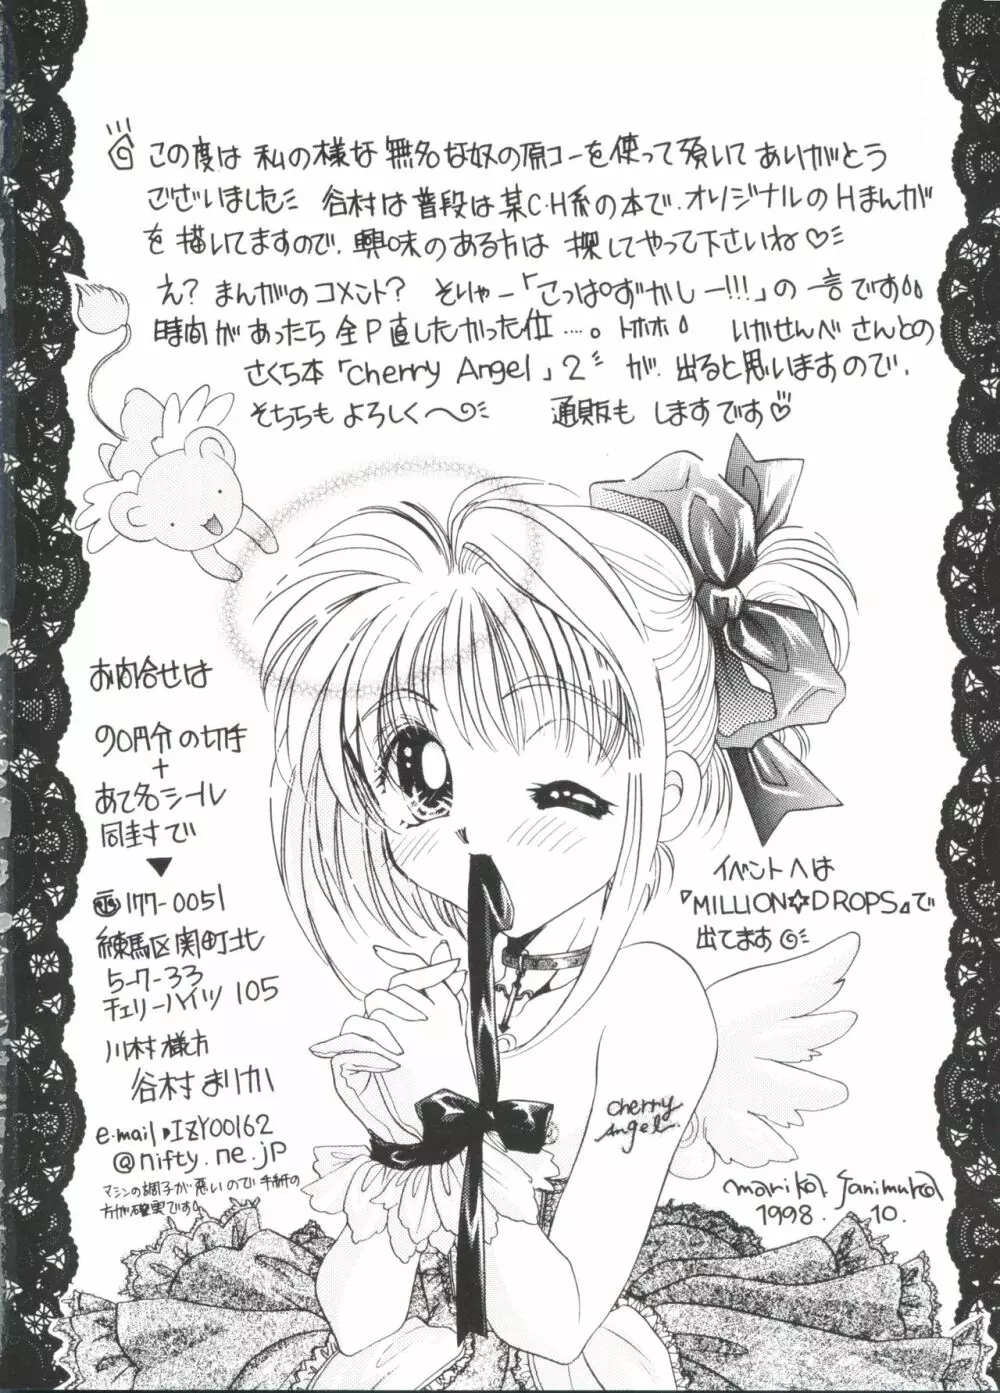 この度は 私の様な 無名な奴の原コーを使って頂いて ありがとう
ございました 谷村は普段は某C・H系の本で、オリジナルのHまんが
を 描いてますので、興味のある方は 探してやって下さいね♡
え? まんがのコメント? そりゃー「こっぱずかしー!!!」の一言です
時間があったら 全P直したかった位……。トホホ いかせんべさんとの
さくら本「cherry Angel」2 が、出ると思いますので、
そちらも よろしく〜 通販も しますです♡
お問合せは
90円分の切手
+
あて名シール
同封で
▼
〒177-0051
練馬区関町北
5-7-33
チェリーハイツ 105
川村様方
谷村まりか
e-mail▶IZY00162
@nifty.ne.jp
マシンの調子が悪いので、手紙の
方が確実です。
イベントへは
『MILLION☆DROPS』で
出てます
cherry
Angel.
marika. Tanimura
1998. 10.